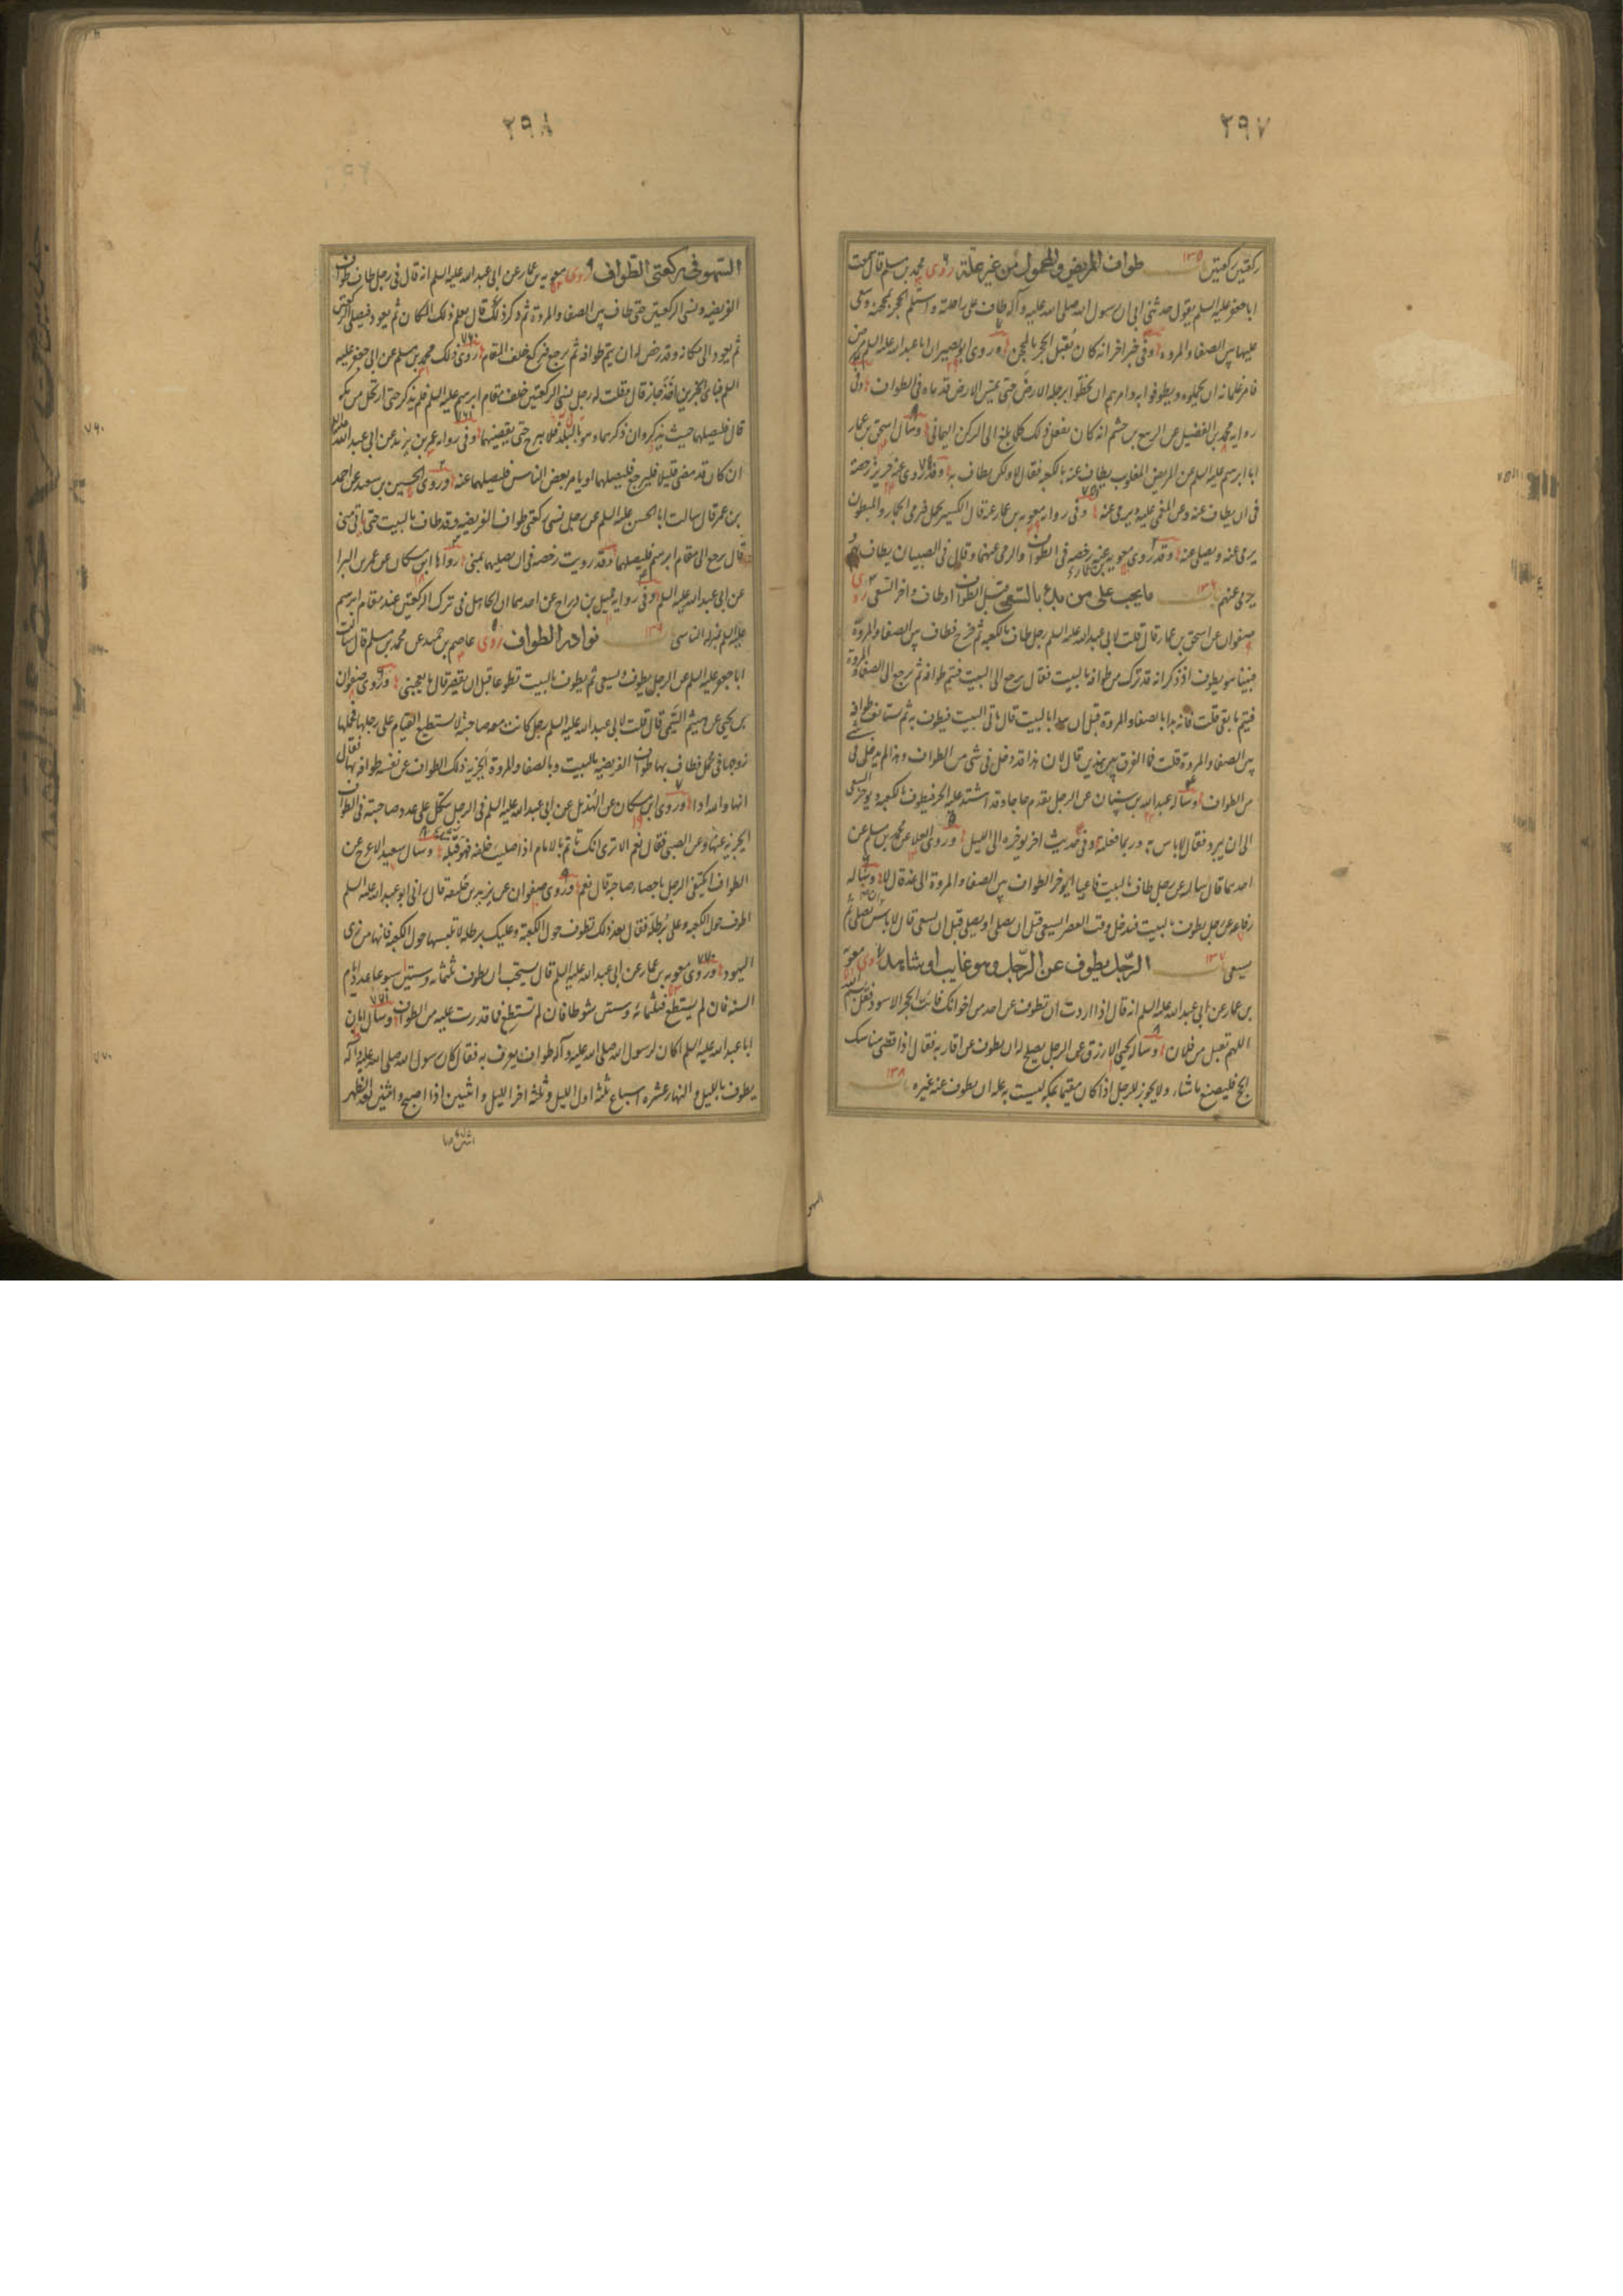 ٢٩٧
ركعتين ركعتين باب ١٣٥ طواف المريض والمحمول من غير علة روى محمد بن مسلم قال سمعت
ابا جعفر عليه السلم يقول حدثنى ابى ان رسول الله صلى الله عليه وآله طاف على راحلته واستلم الحجر بمحجنه وسعى
عليها بين الصفا والمروه وفى خبر اخر انه كان يقبل الحجر بالمحجن وروى ابو بصير ان ابا عبد الله عليه السلم مرض
فامر غلمانه ان يحملوه ويطوفوا به وامرهم ان يخطوا برجله الارض حتى يمس الارض قدماه فى الطواف وفى
روايه محمد بن الفضيل عن الربيع بن خثيم انه كان يفعل ذلك كلما بلغ الى الركن اليمانى وسأل اسحق بن عمار
ابا ابرهيم عليه السلم عن المريض المغلوب يطاف عنه بالكعبه فقال لا ولكن يطاف به وقد روى عنه حريز رخصة
فى ان يطاف عنه وعن المغمى عليه ويرمى عنه وفى روايه معويه بن عمار عنه قال الكسير يحمل فيرمى الجمار والمبطون
يرمى عنه ويصلى عنه وقد روى معويه عنه رخصه فى الطواف والرمى عنهما وقال فى الصبيان يطاف بهم
يرمى عنهم باب ١٣٦ ما يجب على من بدء بالسعى قبل الطواف او طاف واخر السعى روى
صفوان عن اسحق بن عمار قال قلت لابى عبد الله عليه السلم رجل طاف بالكعبه ثم خرج فطاف بين الصفا والمروة
فبينا هو يطوف اذ ذكر انه قد ترك من طوافه بالبيت فقال يرجع الى البيت فيتم طوافه ثم يرجع الى الصفا والمروة
فيتم ما بقى قلت فانه بدا بالصفا والمروة قبل ان يبدا بالبيت قال ياتى البيت فيطوف به ثم يستانف طوافه
بين الصفا والمروة قلت فما الفرق بين هذين قال لان هذا قد دخل فى شى من الطواف وهذا لم يدخل فى شى
من الطواف وساله عبد الله بن سنان عن الرجل يقدم حاجا وقد اشتد عليه الحر فيطوف بالكعبه ويوخر السعى
الى ان يبرد فقال لا باس به وربما فعلته وفى حديث اخر يوخره الى الليل وروى العلا عن محمد بن مسلم عن
احدهما قال سالته عن رجل طاف بالبيت فاعيا ايوخر الطواف بين الصفا والمروة الى غد قال لا وساله
رفاعه عن رجل يطوف بالبيت فيدخل وقت العصر ايسعى قبل ان يصلى او يصلى قبل ان يسعى قال لا باس ان يصلى ثم
يسعى باب ١٣٧ الرجل يطوف عن الرجل وهو غايب او شاهد روى معويه
بن عمار عن ابى عبد الله عليه السلم انه قال اذا اردت ان تطوف عن احد من اخوانك فائت الحجر الاسود فقل بسم الله
اللهم تقبل من فلان وساله يحيى الازرق عن الرجل يصلح له ان يطوف عن اقاربه فقال اذا قضى مناسك
الحج فليصنع ما شاء ولا يجوز للرجل اذا كان مقيما بمكه ليست به عله ان يطوف عنه غيره باب ١٣٨
السهو
٢٩٨
السهو فى ركعتى الطواف روى معويه بن عمار عن ابى عبد الله عليه السلم انه قال فى رجل طاف طواف
الفريضه ونسى الركعتين حتى طاف بين الصفا والمروة ثم ذكر ذلك قال يعلم ذلك المكان ثم يعود فيصلى الركعتين
ثم يعود الى مكانه وقد رخص له ان يتم طوافه ثم يرجع فيركع خلف المقام روى ذلك محمد بن مسلم عن ابى جعفر عليه
السلم فباى الخبرين اخذ جاز قال وقلت له رجل نسى الركعتين خلف مقام ابرهيم عليه السلم فلم يذكر حتى ارتحل من مكه
قال فليصلهما حيث يذكر وان ذكرهما وهو بالبلد فلا يبرح حتى يقضيهما وفى روايه عمر بن يزيد عن ابى عبد الله عليه السلم
ان كان قد مضى قليلا فليرجع فليصلهما او يامر بعض الناس فليصلهما عنه وروى الحسين بن سعيد عن احمد
بن عمر قال سالت ابا الحسن عليه السلم عن رجل نسى ركعتى طواف الفريضه وقد طاف بالبيت حتى ياتى منى
قال يرجع الى مقام ابرهيم فليصلهما وقد رويت رخصه فى ان يصليهما بمنى رواها ابن مسكان عن عمر بن البراء
عن ابى عبد الله عليه السلم وفى روايه جميل بن دراج عن احدهما ان الجاهل فى ترك الركعتين عند مقام ابرهيم
عليه السلم بمنزله الناسى باب ١٣٩ نوادر الطواف روى عاصم بن حميد عن محمد بن مسلم قال سالت
ابا جعفر عليه السلم عن الرجل يطوف ويسعى ثم يطوف بالبيت تطوعا قبل ان يقصر قال ما يعجبنى وروى صفوان
بن يحيى عن هيثم التيمى قال قلت لابى عبد الله عليه السلم رجل كانت معه صاحبة لا تستطيع القيام على رجلها فحملها
زوجها فى محمل فطاف بها طواف الفريضه بالبيت وبالصفا والمروة ايجزيه ذلك الطواف عن نفسه طوافه بها فقال
ايها والله اذا وروى ابن مسكان عن الهذيل عن ابى عبد الله عليه السلم فى الرجل يتكل على عدد صاحبته فى الطواف
ايجزيه عنها وعن الصبى فقال نعم الا ترى انك تاتم بالامام اذا صليت خلفه فهو مثله وسأل سعيد الاعرج عن
الطواف ايكتفى الرجل باحصاء صاحبه قال نعم وروى صفوان عن يزيد بن خليفه قال رانى ابو عبد الله عليه السلم
اطوف حول الكعبه وعلى برطلة فقال بعد ذلك تطوف حول الكعبة وعليك برطله لا تلبسها حول الكعبه فانها من زى
اليهود وروى معويه بن عمار عن ابى عبد الله عليه السلم قال يستحب ان يطوف ثلثمائه وستين اسبوعا عدد ايام
السنه فان لم يستطع فثلثمائه وستين شوطا فان لم تستطع فما قدرت عليه من الطواف وسأل ابان
ابا عبد الله عليه السلم اكان لرسول الله صلى الله عليه وآله طواف يعرف به فقال كان رسول الله صلى الله عليه وآله
يطوف بالليل والنهار عشره اسباع ثلثه اول الليل وثلثه اخر الليل واثنين اذا اصبح واثنين بعد الظهر
٧٦٠
٧٧٠